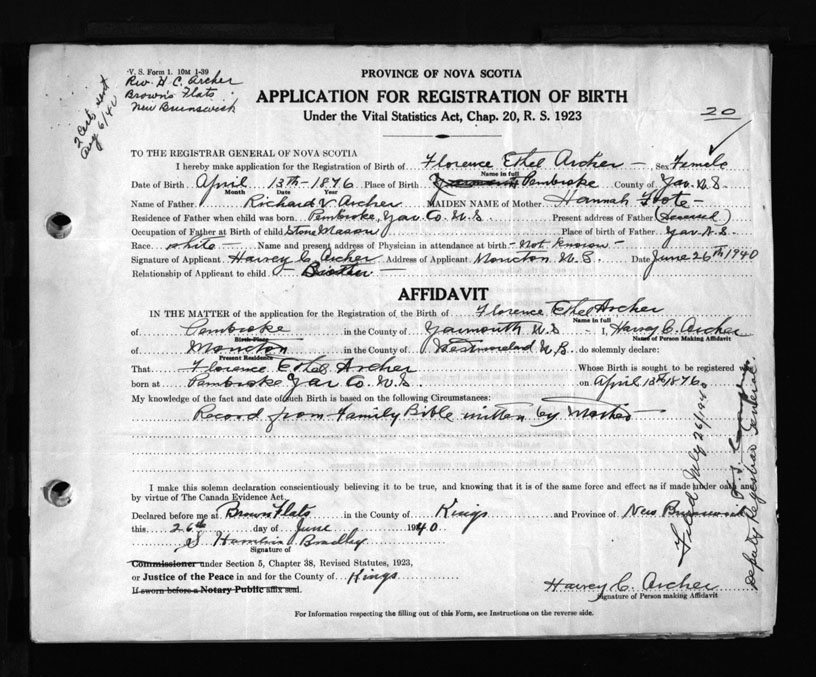 V. S. Form 1. 10M 1-39
Rev. H. C. Archer
Brown's Flats
New Brunswick
2 Certs sent
Aug 6/40
PROVINCE OF NOVA SCOTIA
APPLICATION FOR REGISTRATION OF BIRTH
Under the Vital Statistics Act, Chap. 20, R. S. 1923
20
TO THE REGISTRAR GENERAL OF NOVA SCOTIA
I hereby make application for the Registration of Birth of Florence Ethel Archer — Sex Female
Name in full
Date of Birth April 13th - 1876 Place of Birth Yarmouth Pembroke County of Yar. N.S.
Month Date Year
Name of Father Richard V Archer MAIDEN NAME of Mother Hannah Foote
Residence of Father when child was born Pembroke, Yar Co. N.S. Present address of Father (Deceased)
Occupation of Father at Birth of child Stone Mason Place of birth of Father Yar. N.S.
Race white — Name and present address of Physician in attendance at birth - Not Known -
Signature of Applicant Harvey C. Archer Address of Applicant Moncton N.B. Date June 26th 1940
Relationship of Applicant to child - Brother —
AFFIDAVIT
IN THE MATTER of the application for the Registration of the Birth of Florence Ethel Archer
Name in full
of Pembroke in the County of Yarmouth N.S. - I, Harvey C. Archer
Birth Place Name of Person Making Affidavit
of Moncton in the County of Westmoreland N.B. do solemnly declare:
Present Residence
That Florence Ethel Archer Whose Birth is sought to be registered was
born at Pembroke Yar Co. N.S. on April 13th 1876
My knowledge of the fact and date of such Birth is based on the following Circumstances:
Record from Family Bible written by Mother
I make this solemn declaration conscientiously believing it to be true, and knowing that it is of the same force and effect as if made under oath and
by virtue of The Canada Evidence Act.
Declared before me at Brown Flats in the County of Kings and Province of New Brunswick
this 26th day of June 1940
Bradley
Signature of
Commissioner under Section 5, Chapter 38, Revised Statutes, 1923,
or Justice of the Peace in and for the County of Kings
If sworn before a Notary Public affix seal.
Harvey C. Archer
Signature of Person making Affidavit
For Information respecting the filling out of this Form, see Instructions on the reverse side.
Filed July 26/1940
Deputy Registrar General